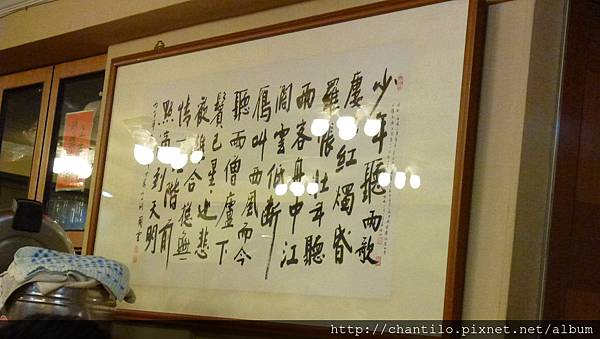 少年聽雨歌
樓上紅燭昏
羅帳壯年聽
雨客舟中江
闊雲低斷
雁叫西風而今
聽雨僧廬下
鬢已星也悲
歡離合總無
情階前
點滴到天明
http://chantilo.pixnet.net/album